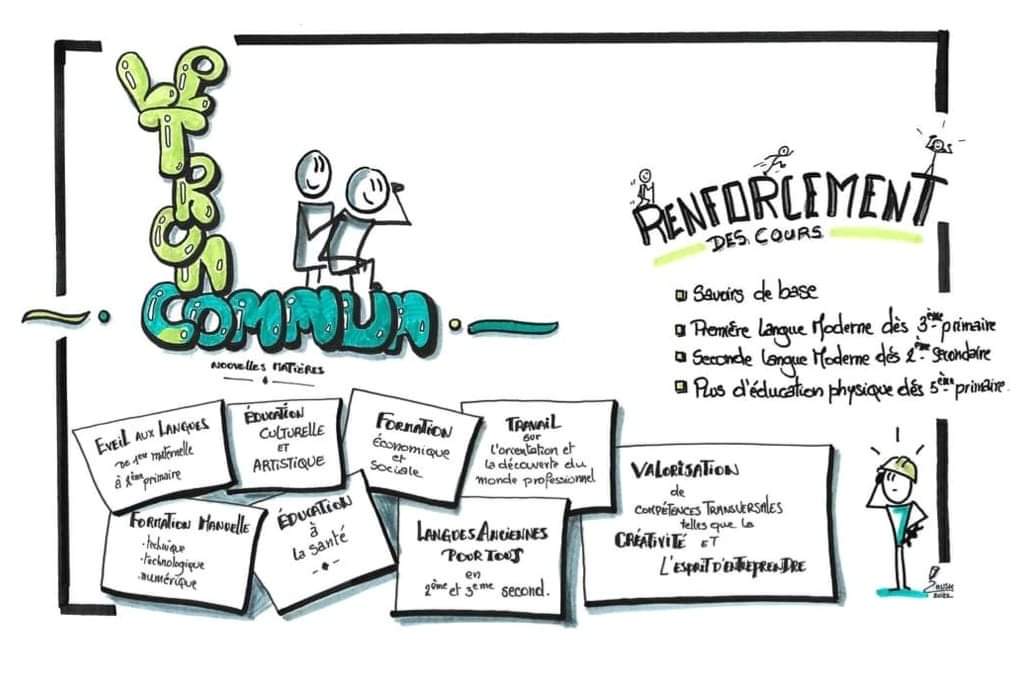 LE TRONC
COMMUN
NOUVELLES MATIÈRES
EVEIL AUX LANGUES
DE 1ère maternelle
à 2ème primaire
ÉDUCATION
CULTURELLE
ET
ARTISTIQUE
FORMATION
économique
et
sociale
TRAVAIL
sur
l'orientation et
la découverte du
monde professionnel
FORMATION MANUELLE
.technique
.technologique
.numérique
ÉDUCATION
à
la santé
LANGUES ANCIENNES
POUR TOUS
en
2ème et 3eme second.
VALORISATION
de
COMPÉTENCES TRANSVERSALES
telles que la
CRÉATIVITÉ ET
L'ESPRIT D'ENTREPRENDRE
RENFORCEMENT
DES COURS
Savoirs de base
Première Langue Moderne dès 3ème primaire
Seconde Langue Moderne dès 2ème secondaire
Plus d'éducation physique dès 5ème primaire.
2022